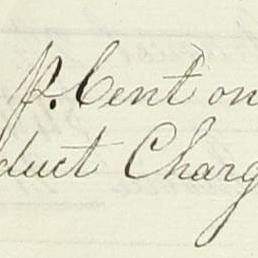 p. Cent on
duct Charg